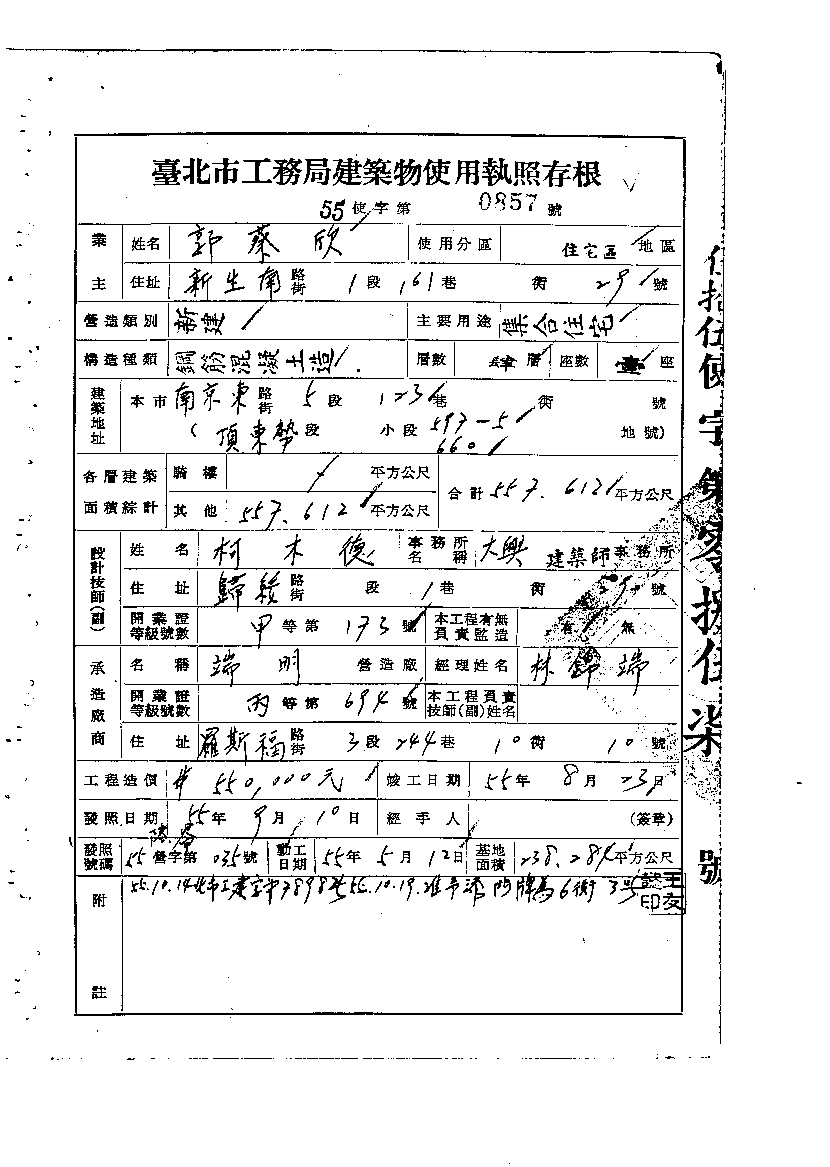 臺北市工務局建築物使用執照存根
55使字第 0857 號
業主 姓名 郭蔡欣 使用分區 住宅區 地區
住址 新生南路街 1段 161巷 街 29號
營造類別 新建 主要用途 集合住宅
構造種類 鋼筋混凝土造 層數 肆層 座數 壹座
建築地址 本市 南京東路街 5段 123巷 街 號
(頂東勢段 小段 597-5 660 地號)
各層建築面積綜計 騎樓 平方公尺 合計 557.612平方公尺
其他 557.612平方公尺
設計技師(副) 姓名 柯木 事務所名稱 大興 建築師事務所
住址 歸綏路街 段 1巷 街 號
開業證等級號數 甲等第 173號 本工程有無負責監造 有 無
承造廠商 名稱 端明 營造廠 經理姓名 林錦端
開業證等級號數 丙等第 694號 本工程負責技師(副)姓名
住址 羅斯福路街 3段 244巷 10街 10號
工程造價 550,000元 竣工日期 55年 8月 23日
發照日期 55年 9月 10日 經手人 (簽章)
發照號碼 55營字第 035號 動工日期 55年 5月 12日 基地面積 238.284平方公尺
附註 門牌為6街 3號
伍拾伍使字第零捌伍柒號